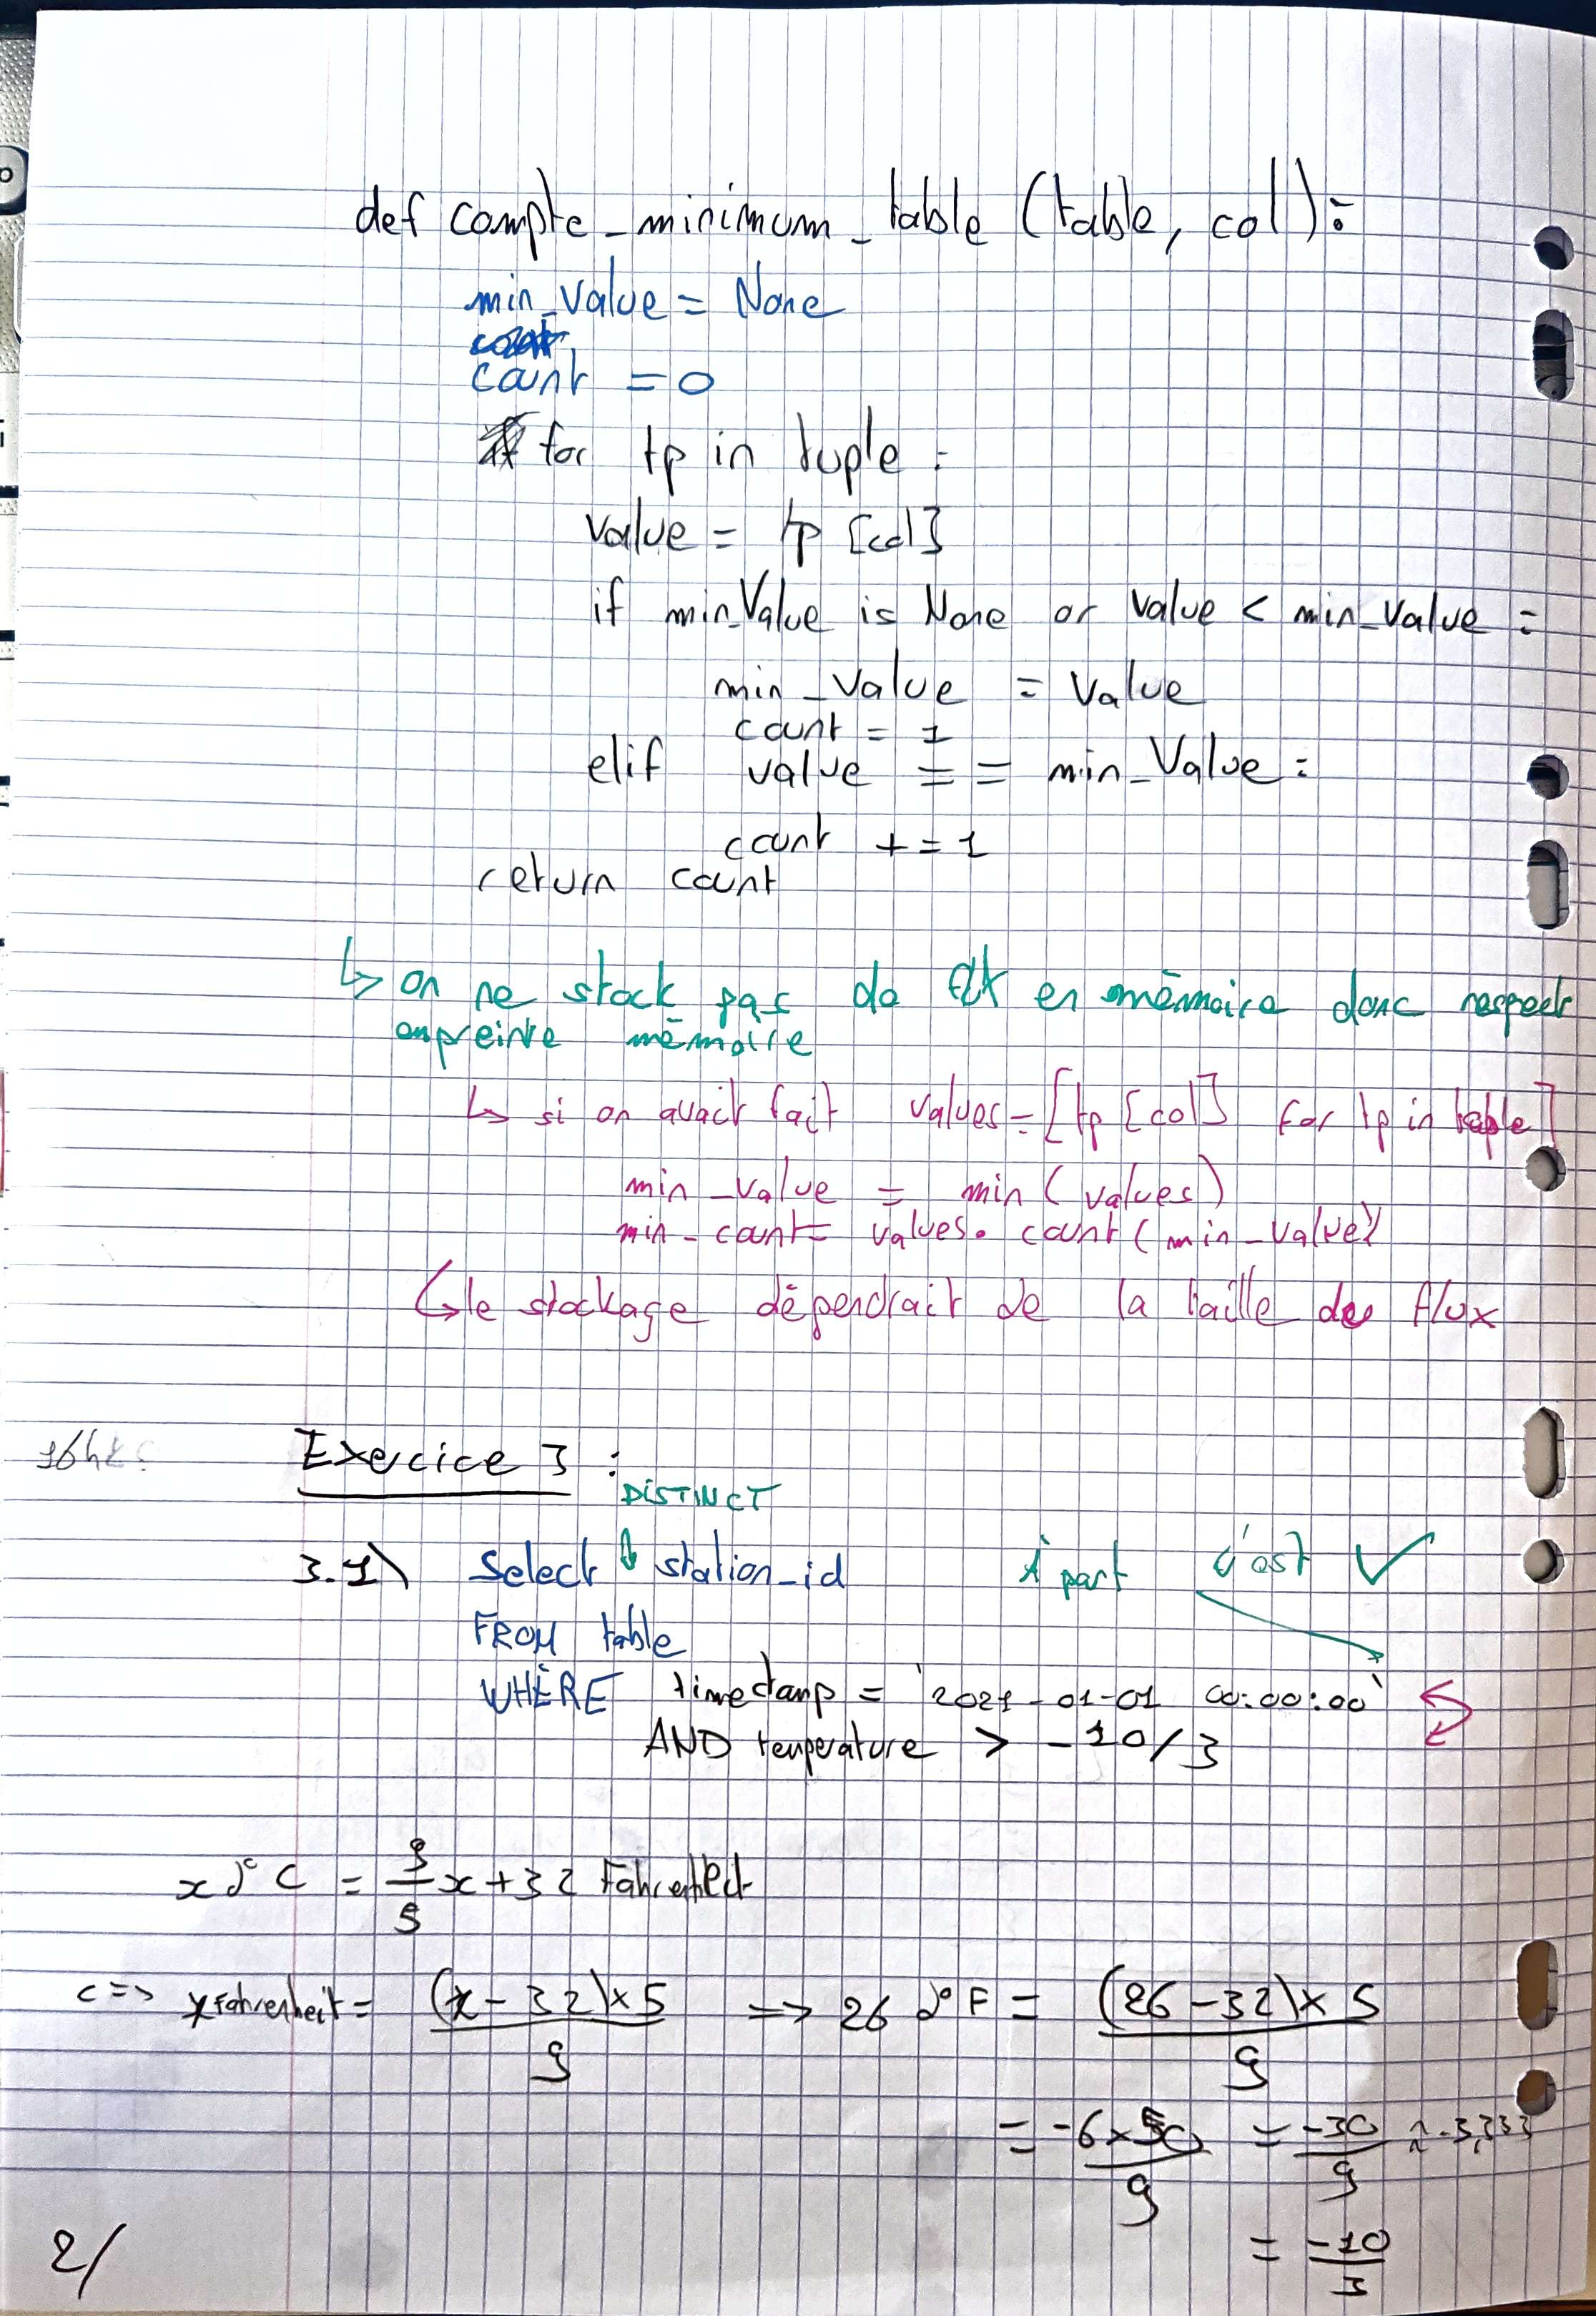 def compte_minimum_table (table, col):
min_value = None
count = 0
for tp in tuple :
value = tp [col]
if min_Value is None or value < min_value :
min_value = value
count = 1
elif value == min_Value :
count += 1
return count
↳ on ne stock pas de flx en mémoire donc respect
enpreinte mémoire
↳ si on avait fait values=[tp [col] for tp in table]
min_value = min (values)
min_count= values. count (min_value)
↳ le stockage dépendrait de la taille des flux
Exercice 3 :
DISTINCT
3.1\ Select ↓ station_id À part ça c'est ✓
FROM table
WHERE timestamp = '2021-01-01 00:00:00'
AND temperature > -10/3
x d°C = 9/5 x + 32 Fahrenheit
<=> x Fahrenheit = (x - 32) x 5 / 9 => 26 d°F = (26 - 32) x 5 / 9
= -6 x 5 / 9 = -30/9 ≈ -3,333
= -10/3
2/